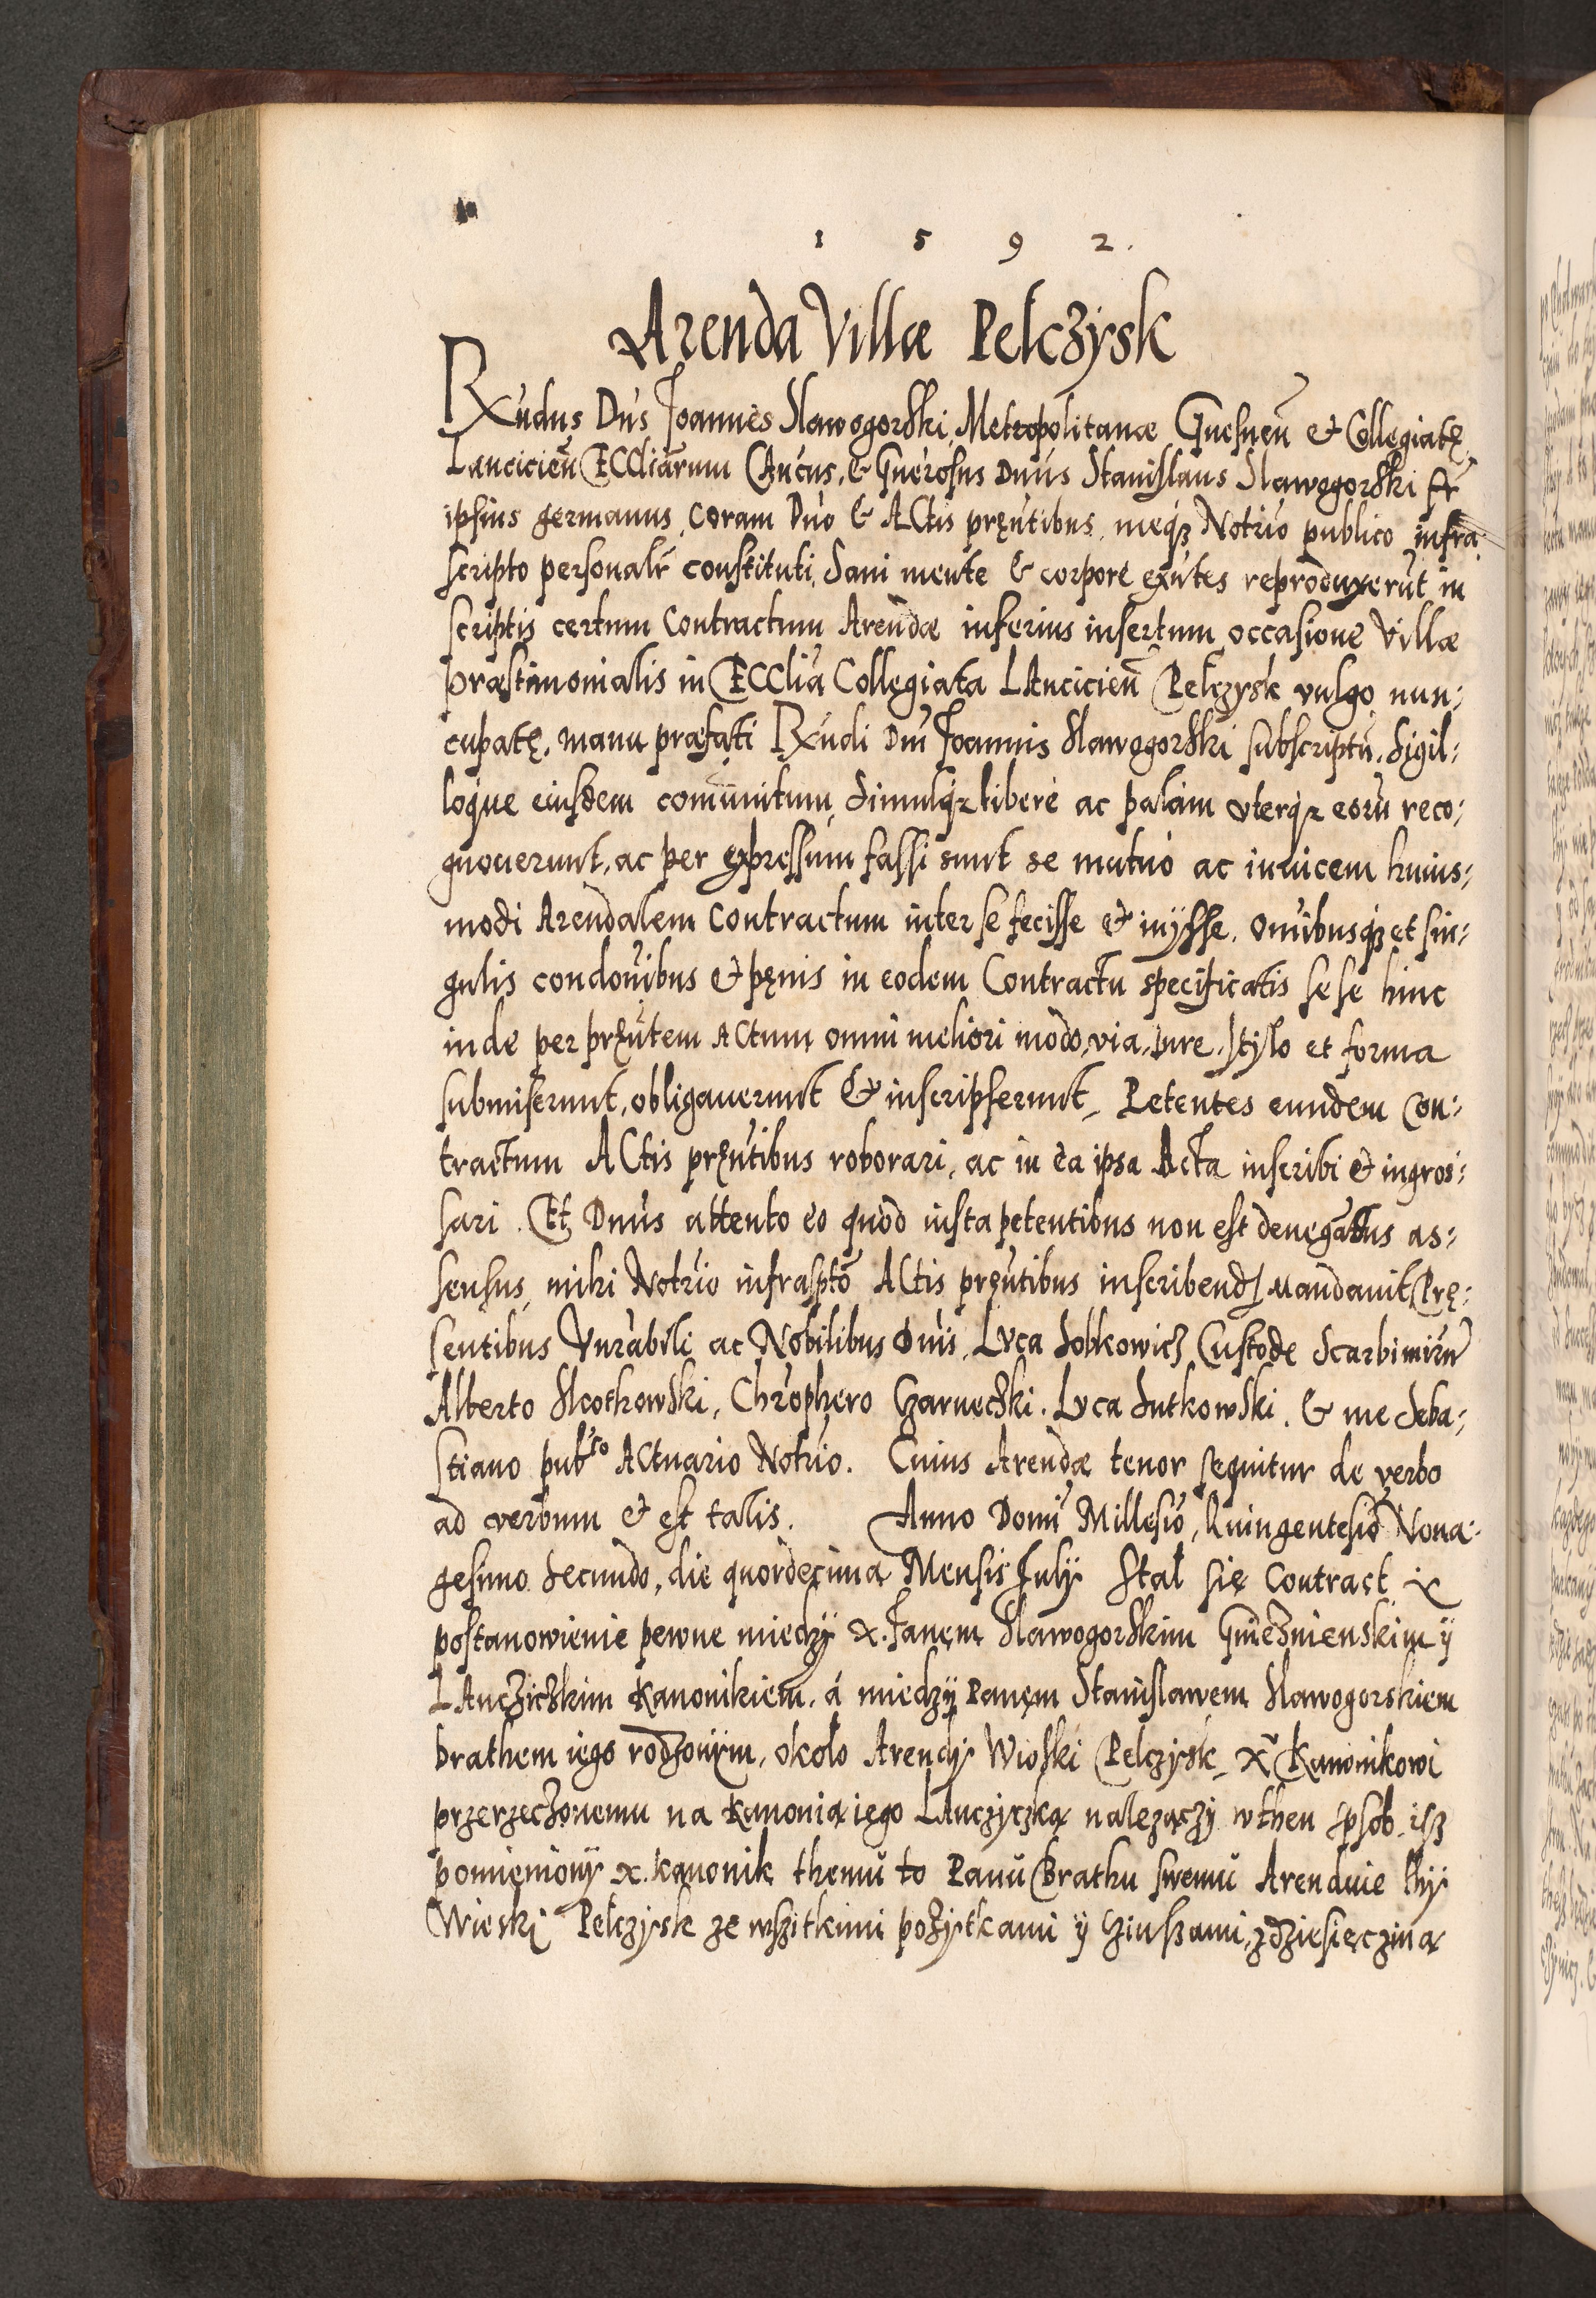 1 5 9 2.
Arenda Villæ Pelczysk
Rxũdus Dñs Joannes Slawogorski, Metropolitanæ Gnesneñ et Collegiatę
Lancicieñ Ecclĩarum Cãncus, & Gnẽrosus Dnũs Stanislaus Slawogorski fr̃
ipsius germanus, coram Dnõ & Actis pręñtibus, meq₃ Notrĩo publico infra
scripto personalr̃ constituti, Sani mente & corpore exñtes reproduxerũt in
scriptis certum Contractum Arendæ inferius insertum occasione Villæ
præstimonialis in Ecclĩa Collegiata Lancicieñ Pelczysk vulgo nun:
cupatę, manu præfati Rxũdi Dni Joannis Slawogorski subscriptũ, Sigil:
loque eiusdem comũnitum, Simulq₃ libere ac palam vterq₃ eorũ reco:
gnouerunt, ac per expressum fassi sunt se mutuo ac inuicem huius:
modi Arendalem Contractum inter se fecisse & inijsse, omñibusq₃ et sin:
gulis condoñibus & pęnis in eodem Contractu specificatis sese hinc
inde per pręñtem Actum omni meliori modo, via, iure, stylo et forma
submiserunt, obligauerunt & inscripserunt, Petentes eundem Con:
tractum Actis pręñtibus roborari, ac in ea ipsa Acta inscribi & ingros:
sari. Et Dnũs attento eo quod iusta petentibus non est denegandus as:
sensus, mihi Notrĩo infrasptõ Actis pręñtibus inscribend mandauit Prę:
sentibus Vnrãbili ac Nobilibus Dnĩs, Luca Sobkowicz Custode Scarbimirñ
Alberto Slcotkowski, Chrõphero Czarneczki, Luca Sutkowski, & me Seba:
stiano pub^co Actuario Notrĩo. Cuius Arendæ tenor sequitur de verbo
ad verbum & est talis. Anno Domĩ Millesĩo, Quingentesĩo Nona:
gesimo Secundo, die quordecima Mensis Julij Stał się Contract y
postanowienie pewne miedzÿ X. Janem Slawogorskim Gnieznienskim ÿ
Lancziczkim Kanonikiem, á miedzÿ Panem Stanislawem Slawogorskiem
brathem iego rodzonÿm, około Arendÿ Wioski Pelczysk, X. Kanonikowi
przerzeczonemu na Kanonią iego Lanczyczką nalezączÿ wthen sposob, isz
pomienionÿ X. Kanonik themu to Panu Brathu swemu Arenduie thÿ
Wieskę Pelczysk ze wszitkimi pożytkami ÿ Czinszami, zdziesięcziną